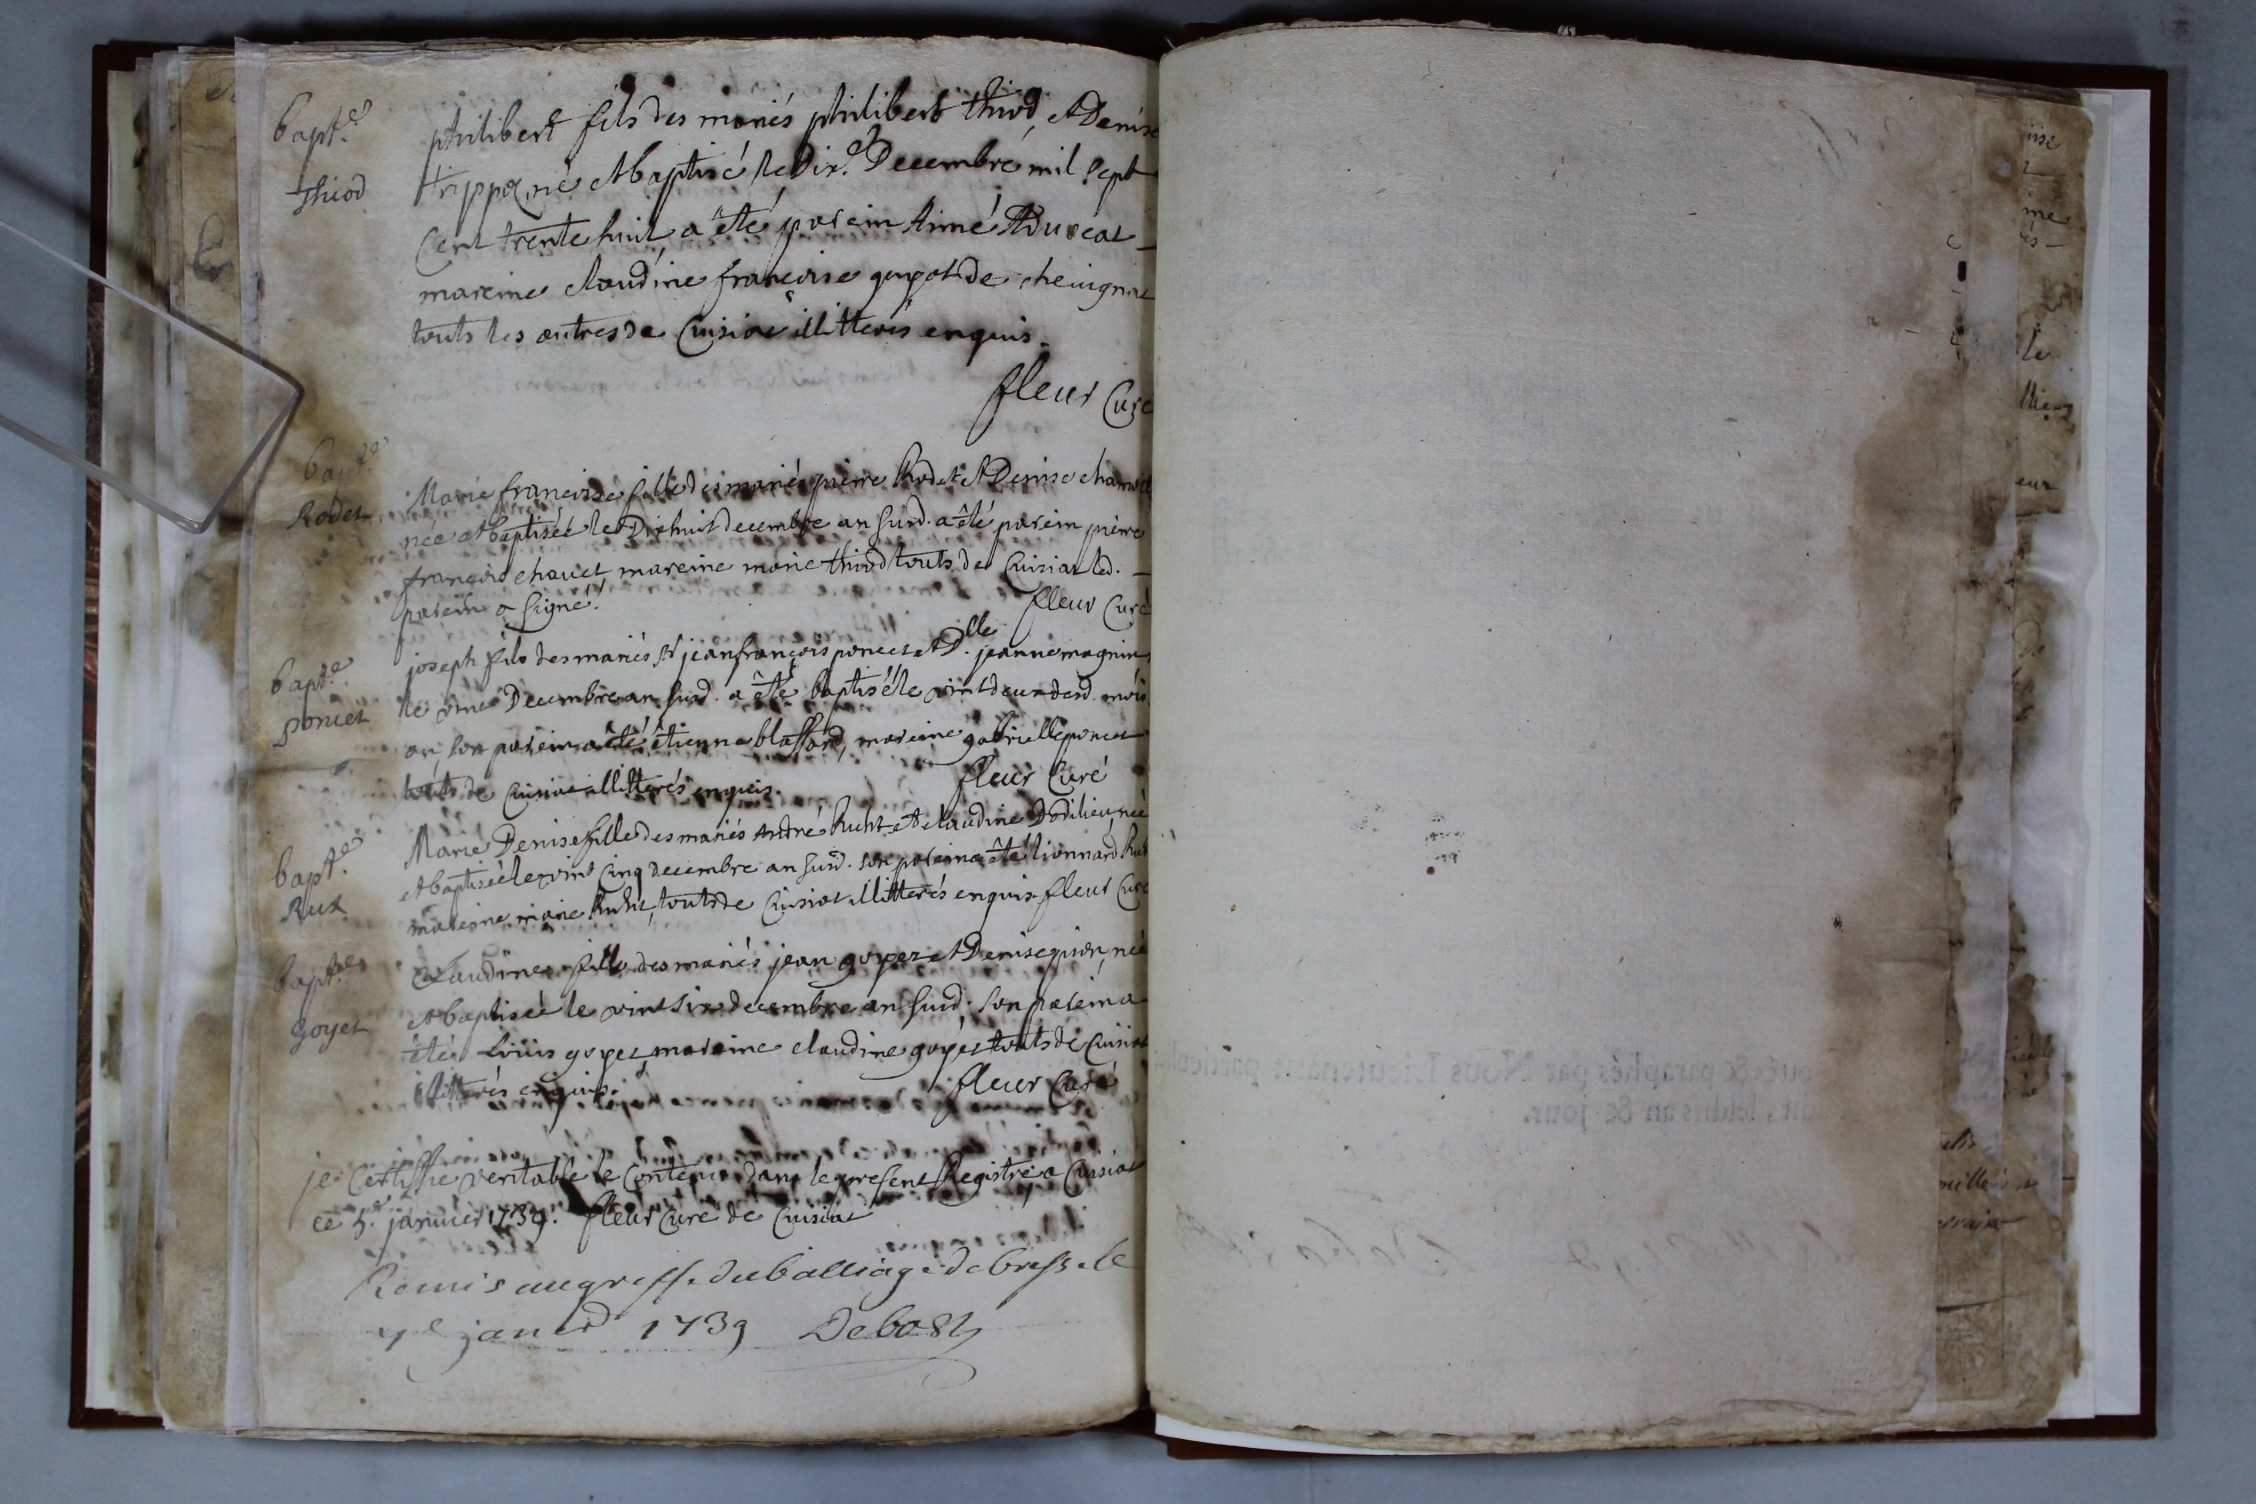 bapt.e
Thiod
philibert fils des mariés philibert thiod, et Denise
trippoz, né et baptisé le Dix.e Decembre mil sept
Cent trente huit, a êté parein Aimé Aduocat
mareine claudine françoise guyot de cheuignat
touts les autres de Cuisiat illitterés enquis.
fleur Curé
bapt.e
Rodet
Marie françoise fille des mariés pierre Rodet et Denise
née et baptisée le Dixhuit decembre an susd. a êté parein pierre
françois chauet, mareine marie thiod touts de Cuisiat led.
parein a signé.
fleur Curé
bapt.e
poncet
joseph fils des mariés Sr jean françois poncet et D.lle jeanne magnin
né Decembre an susd. a êté baptisé le vint deux desd. mois
an, son parein a êté êtienne blassard, mareine gabrielle poncet
touts de Cuisiat illitterés enquis.
fleur Curé
bapt.e
Rux
Marie Denise fille des mariés André et claudine Dodilieu, née
et baptisée le vint Cinq decembre an susd. son parein a êté lionnard
mareine marie touts de Cuisiat illitterés enquis. fleur Curé
bapt.e
goyet
Claudine fille des mariés jean goyet et Denise pion, née
et baptisée le vint six decembre an susd. son parein a
êté Loüis goyet, mareine claudine goyet touts de Cuisiat
illitterés enquis.
fleur Curé
je Certiffie veritable le Contenu dans le present Registre, a Cuisiat
ce januier 1739. fleur Curé de Cuisiat
Remis au greffe du balliage de bresse le
janer 1739 Debost